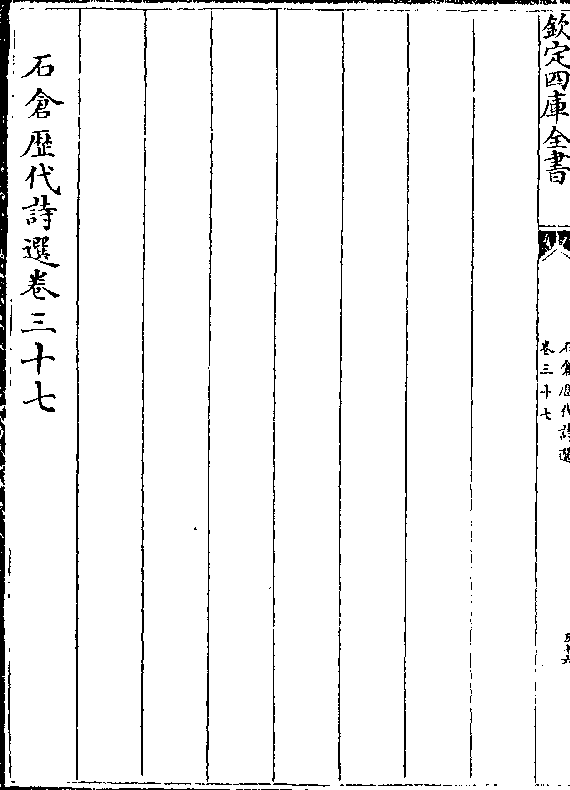 欽定四庫全書
石倉歷代詩選
卷三十七
石倉歷代詩選卷三十七